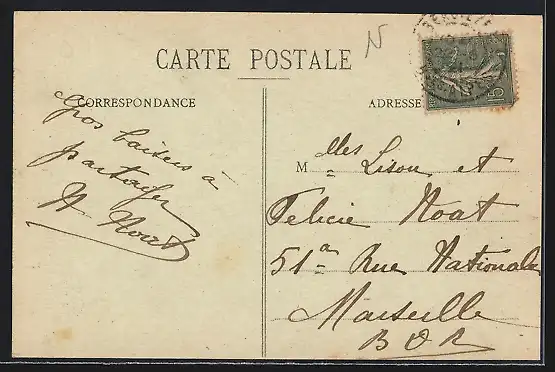 N
CARTE POSTALE
CORRESPONDANCE
Gros baisers à
partager
N. Noat
ADRESSE
Mdlles Lison et
Felicie Noat
51a Rue Nationale
Marseille
B D R
15